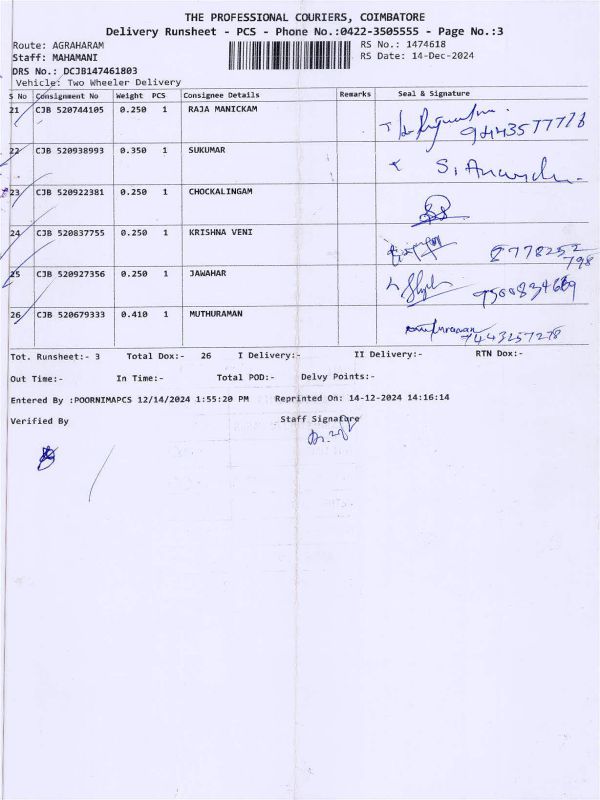 THE PROFESSIONAL COURIERS, COIMBATORE
Delivery Runsheet - PCS - Phone No.:0422-3505555 - Page No.:3
Route: AGRAHARAM RS No.: 1474618
Staff: MAHAMANI RS Date: 14-Dec-2024
DRS No.: DCJB147461803
Vehicle: Two Wheeler Delivery
S No Consignment No Weight PCS Consignee Details Remarks Seal & Signature
21 CJB 520744105 0.250 1 RAJA MANICKAM
22 CJB 520938993 0.350 1 SUKUMAR
23 CJB 520922381 0.250 1 CHOCKALINGAM
24 CJB 520837755 0.250 1 KRISHNA VENI
25 CJB 520927356 0.250 1 JAWAHAR
26 CJB 520679333 0.410 1 MUTHURAMAN
7443257278
Tot. Runsheet:- 3 Total Dox:- 26 I Delivery:- II Delivery:- RTN Dox:-
Out Time:- In Time:- Total POD:- Delvy Points:-
Entered By :POORNIMAPCS 12/14/2024 1:55:20 PM Reprinted On: 14-12-2024 14:16:14
Verified By Staff Signature